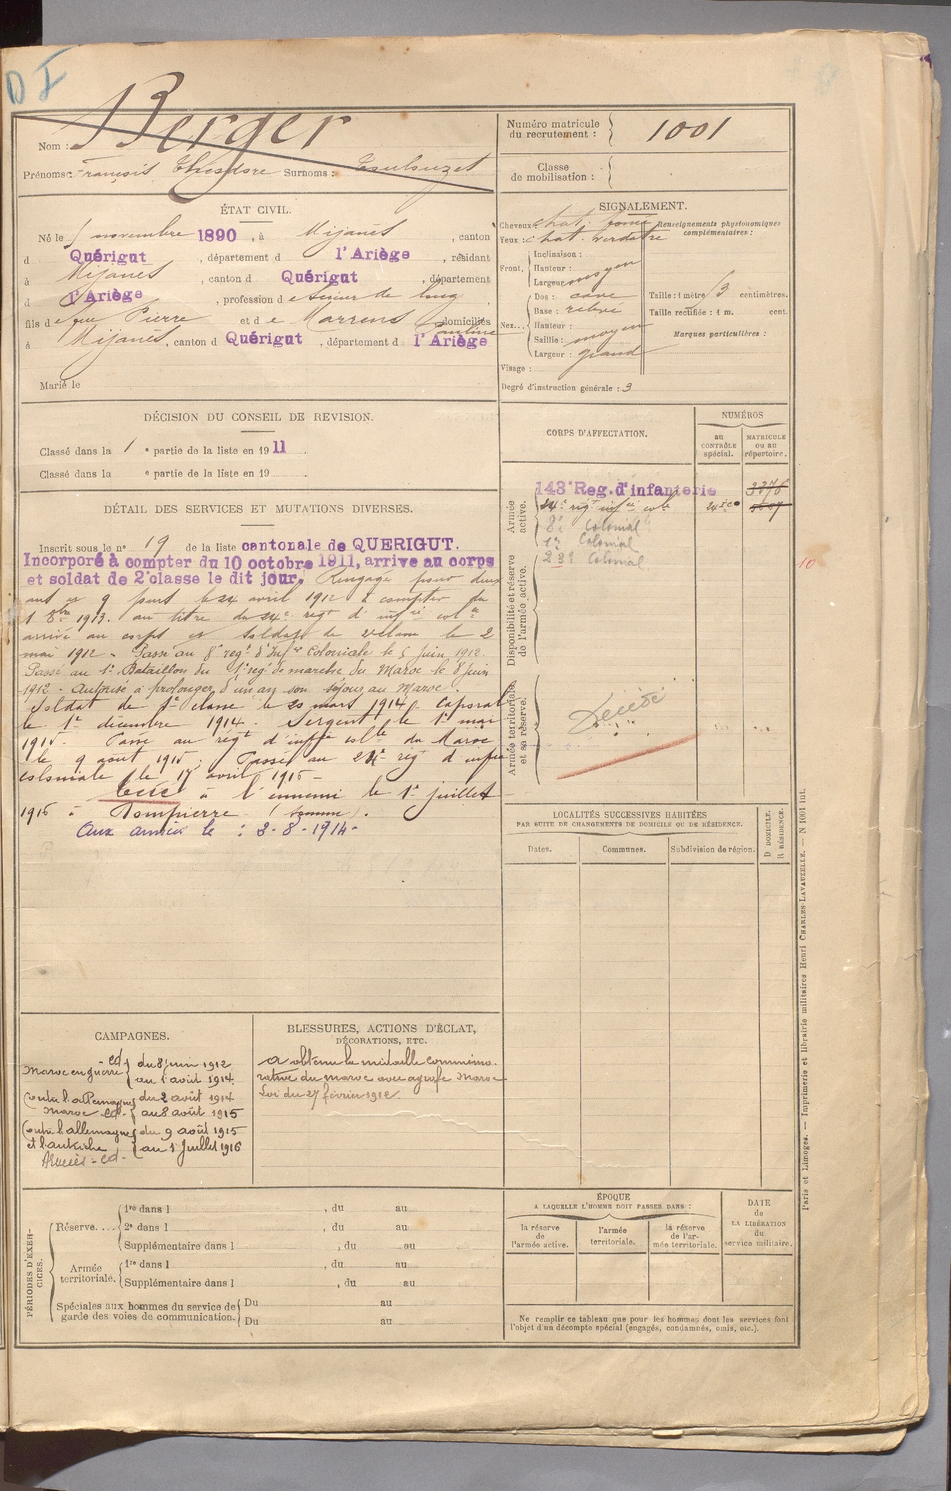 D I
Berger
Nom :
Prénoms : François Théodore Surnoms :
Numéro matricule
du recrutement : 1001
Classe
de mobilisation :
ÉTAT CIVIL.
Né le 1 novembre 1890, à Mijanès, canton
d Quérigut, département d l'Ariège, résidant
à Mijanès, canton d Quérigut, département
d l'Ariège, profession de Scieur de long,
fils de feu Pierre et de Marrens Pauline domiciliés
à Mijanès, canton d Quérigut, département d l'Ariège
Marié le
SIGNALEMENT.
Cheveux chat. foncé
Yeux : chat. verdatre
Renseignements physionomiques
complémentaires :
Front,
Inclinaison :
Hauteur :
Largeur moyen
Nez...
Dos : cave
Base : relevé
Hauteur :
Saillie : moyen
Largeur : grand
Visage :
Taille : 1 mètre centimètres.
Taille rectifiée : 1 m. cent.
Marques particulières :
Degré d'instruction générale : 3
DÉCISION DU CONSEIL DE REVISION.
Classé dans la 1 e partie de la liste en 1911
Classé dans la e partie de la liste en 19
CORPS D'AFFECTATION.
NUMÉROS
au
CONTRÔLE
spécial.
MATRICULE
ou au
répertoire.
Armée
active.
143e Reg. d'infanterie 3376
24e regt infie cole
8e Colonial
1er Colonial
Colonial
Disponibilité et réserve
de l'armée active.
Armée territoriale
et sa réserve.
Décédé
10
DÉTAIL DES SERVICES ET MUTATIONS DIVERSES.
Inscrit sous le n° 19 de la liste cantonale de QUERIGUT.
Incorporé à compter du 10 octobre 1911, arrive au corps
et soldat de 2e classe le dit jour. Rengagé pour deux
ans le 24 avril 1912 à compter du
1 8bre 1913. au titre du 24e regt d'infie cole
arrivé au corps et soldat de 2e classe le 2
mai 1912 - Passé au 8e regt d'Infie Coloniale le 5 juin 1912.
Passé au 1er Bataillon du 1er regt de marche du Maroc le 8 juin
1912 - Autorisé à prolonger d'un an son séjour au Maroc.
Soldat de 1e classe le 20 mars 1914. Caporal
le 1er décembre 1914. Sergent le 1er mai
1915. Passé au régt d'inffie colle du Maroc
le 9 août 1915. Passé au 24e rég d'infie
coloniale le 17 avril 1915 -
Tué à l'ennemi le 1er juillet
1916 à Dompierre (Somme).
Aux armées le : 3-8-1914-
LOCALITÉS SUCCESSIVES HABITÉES
PAR SUITE DE CHANGEMENTS DE DOMICILE OU DE RÉSIDENCE.
Dates.
Communes.
Subdivision de région.
D DOMICILE.
R RÉSIDENCE.
CAMPAGNES.
Maroc en guerre - cd du 8 juin 1912
au 1 août 1914
Contre l'allemagne du 2 août 1914
Maroc - cd - au 8 août 1915
Contre l'allemagne du 9 août 1915
et l'autriche au 1 Juillet 1916
Armées - cd -
BLESSURES, ACTIONS D'ÉCLAT,
DÉCORATIONS, ETC.
a obtenu la médaille commémo-
rative du maroc avec agrafe Maroc
Loi du 27 février 1912
PÉRIODES D'EXER-
CICES.
Réserve....
1re dans l , du au
2e dans l , du au
Supplémentaire dans l , du au
Armée
territoriale.
1re dans l , du au
Supplémentaire dans l , du au
Spéciales aux hommes du service de
garde des voies de communication.
Du au
Du au
ÉPOQUE
A LAQUELLE L'HOMME DOIT PASSER DANS :
la réserve
de
l'armée active.
l'armée
territoriale.
la réserve
de l'ar-
mée territoriale.
DATE
de
LA LIBÉRATION
du
service militaire.
Ne remplir ce tableau que pour les hommes dont les services font
l'objet d'un décompte spécial (engagés, condamnés, omis, etc.).
Paris et Limoges. — Imprimerie et librairie militaires Henri CHARLES-LAVAUZELLE. — N 1001 int.